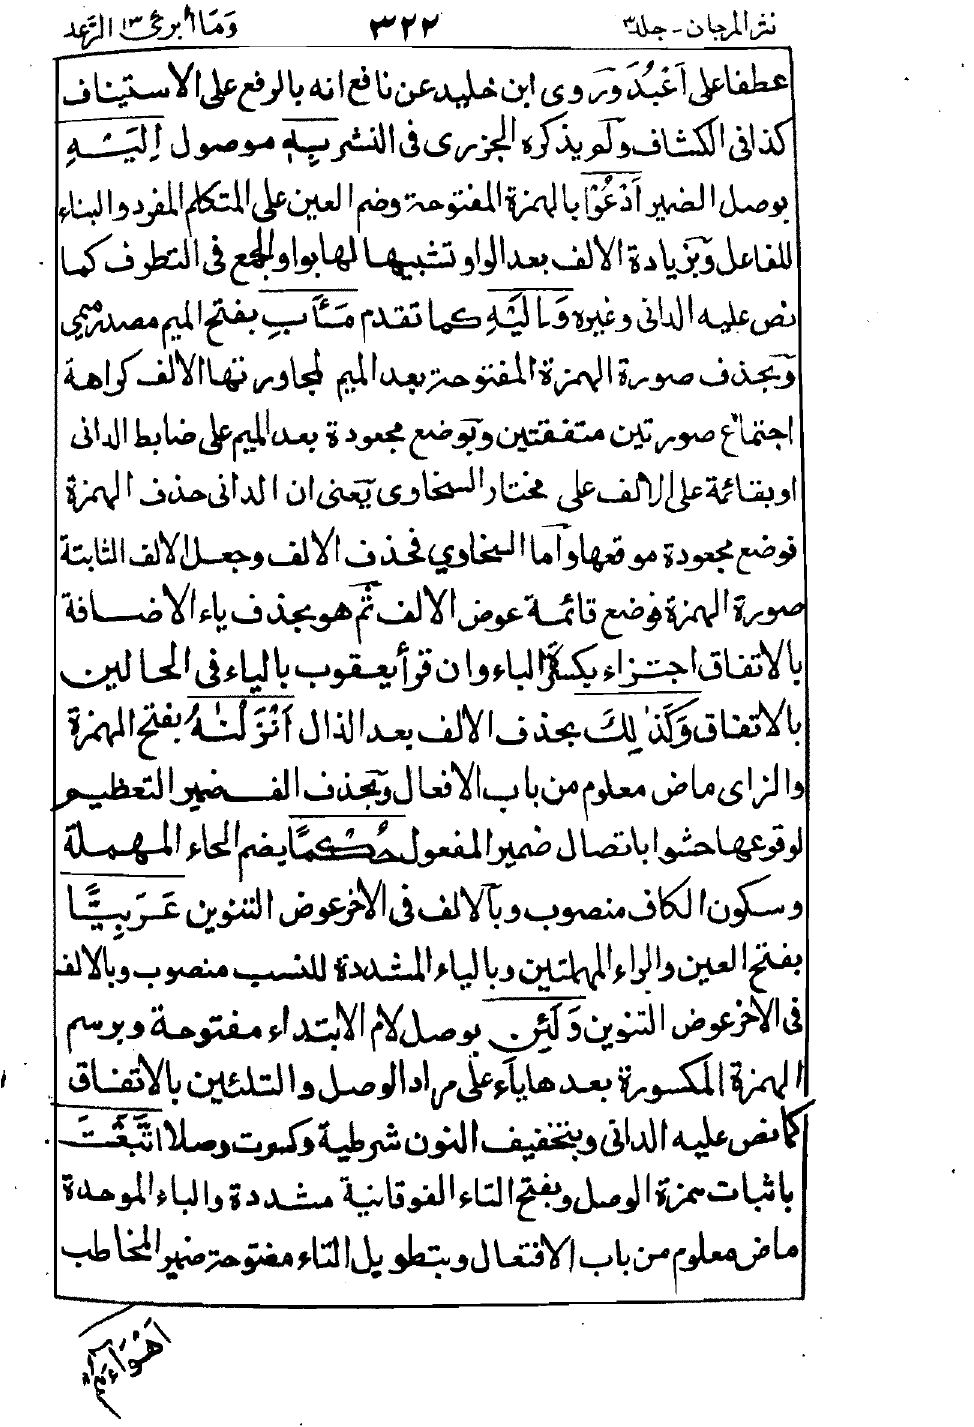 نثر المرجان - جلد ٣ ٣٢٢ وَمَا أبرئ ١٣ الرَّعد
عطفا على أَعْبُدَ وَرَوى ابن خليد عن نافع انه بالرفع على الاستيناف
كذا فى الكشاف ولَم يذكره الجزرى فى النشر بِهٖ موصول اِلَيْهِ
بوصل الضمير اَدْعُوْا بالهمزة المفتوحة وضم العين على المتكلم المفرد والبناء
للفاعل وَبزيادة الالف بعد الواو تشبيها لها بواو الجمع فى التطرف كما
نص عليه الدانى وغيره وَاِلَيْهِ كما تقدم مَـَٔابِ بفتح الميم مصدر ميمى
وَبحذف صورة الهمزة المفتوحة بعد الميم لمجاورتها الالف كراهة
اجتماع صورتين متفقتين وَبوضع مجعودة بعد الميم على ضابط الدانى
او بقائمة على الالف على مختار السخاوى يَعنى ان الدانى حذف الهمزة
فوضع مجعودة موقعها وَاَما السخاوي فحذف الالف وجعل الالف الثابتة
صورة الهمزة فوضع قائمة عوض الالف ثُم هو بحذف ياء الاضافة
بالاتفاق اجتزاء بكسرة الباء وان قرأ يعقوب بالياء فى الحالين
بالاتفاق وَكَذٰلِكَ بحذف الالف بعد الذال اَنْزَلْنٰهُ بفتح الهمزة
والزاى ماض معلوم من باب الافعال وَبحذف الف ضمير التعظيم
لوقوعها حشوا باتصال ضمير المفعول حُكْمًا بضم الحاء المهملة
وسكون الكاف منصوب وبآلالف فى الاخر عوض التنوين عَرَبِيًّا
بفتح العين والراء المهملتين وبالياء المشددة للنسب منصوب وبالالف
فى الاخر عوض التنوين وَلَئِنِ بوصل لام الابتداء مفتوحة وبرسم
الهمزة المكسورة بعدها ياَء على مراد الوصل والتلئين بالاتفاق
كما نص عليه الدانى وبتخفيف النون شرطية وكسرت وصلا اتَّبَعْتَ
باثبات همزة الوصل وبفتح التاء الفوقانية مشددة والباء الموحدة
ماض معلوم من باب الافتعال وبتطويل التاء مفتوحة ضمير المخاطب
اَهْوَاءَ